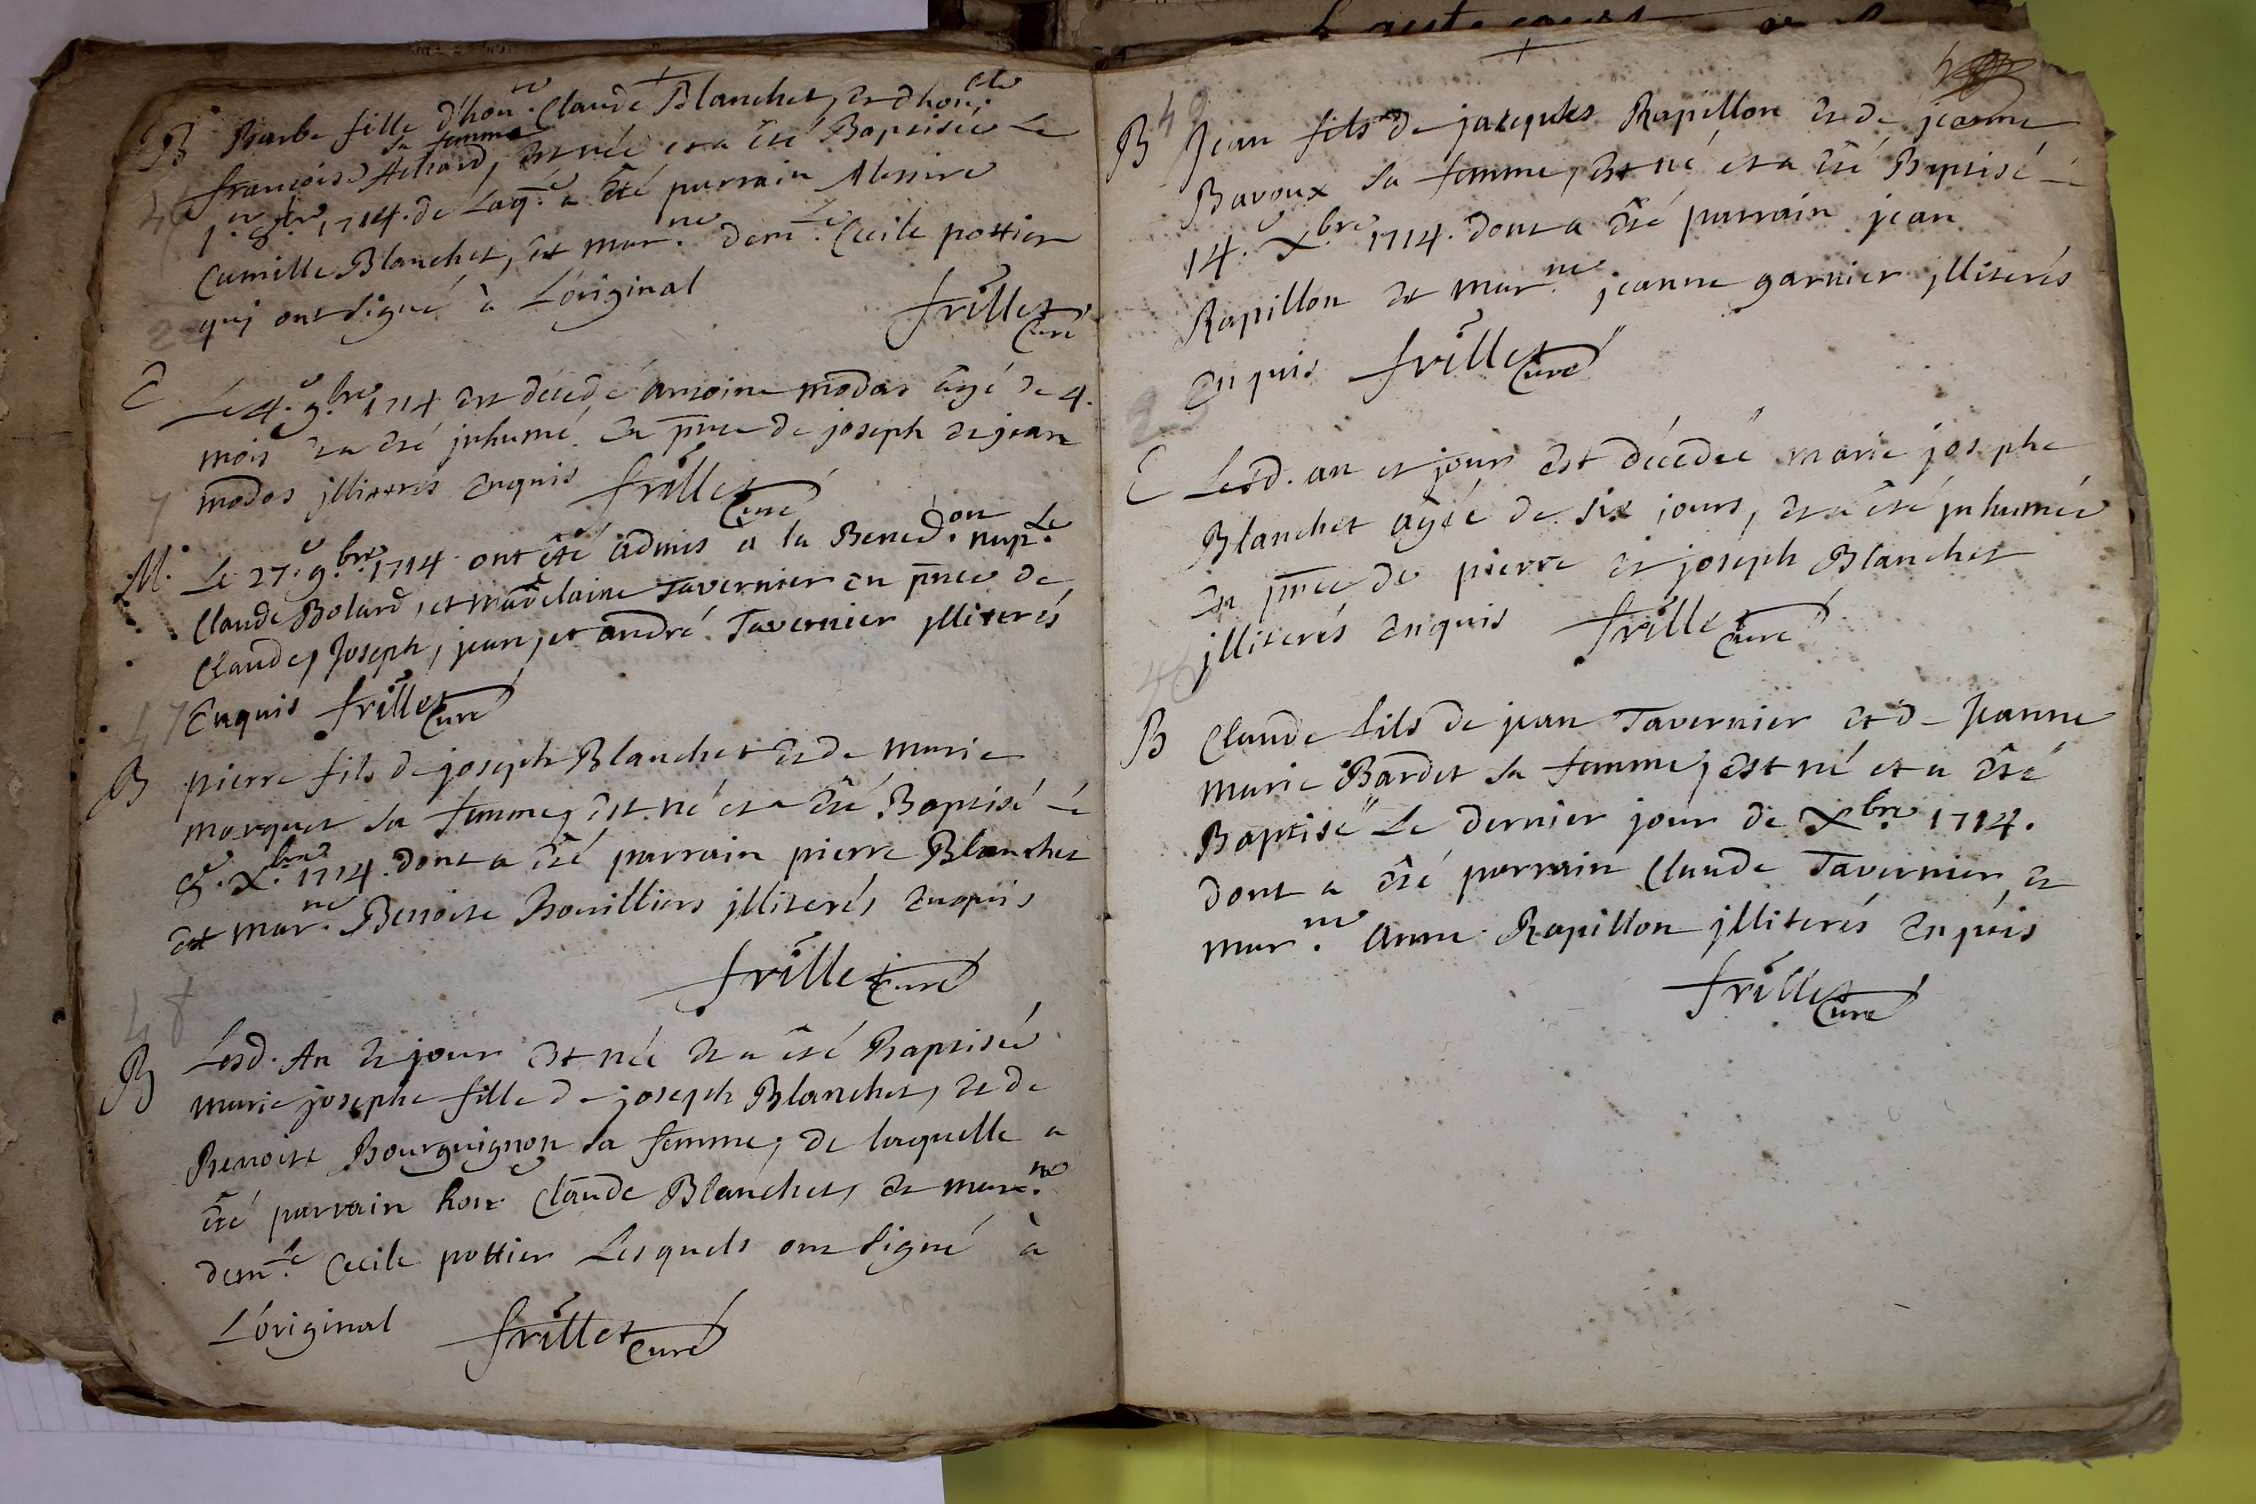 B Barbe fille d'hon.te Claude Blanchet, et d'hon.ete
françoise Achard, sa femme est née et a été Baptisée Le
1.er 8.bre 1714. de Laq.e a été parrain Messire
Camille Blanchet, et mar.ne dem.lle Cecile pottier
qui ont signé à L'original
frillet Curé
E Le 4.e 9.bre 1714 est décédé antoine modas âgé de 4.
mois et a été jnhumé en pnce de joseph et jean
modas jlliterés enquis frillet Curé
M. Le 27.e 9.bre 1714. ont été admis a la Bened.on nup.le
Claude Bolard, et madelaine Tavernier en pnce de
Claude, Joseph, jean, et andré Tavernier jlliterés
47
Enquis frillet Curé
B pierre fils de joseph Blanchet et de marie
marquet sa femme, est né et a été Baptisé Le
8.e X.bre 1714. dont a été parrain pierre Blanchet
et mar.ne Benoite Bouilliers jlliterés enquis
frillet Curé
48
B Lesd. An et jour est née et a été Baptisée
marie josephe fille de joseph Blanchet, et de
Benoite Bourguignon sa femme, de laquelle a
été parrain hon. Claude Blanchet, et mar.ne
dem.le Cecile pottier Lesquels ont signé à
L'original frillet Curé
49
B Jean fils de jacques Rapillon et de jeanne
Bavoux sa femme, est né et a été Baptisé Le
14.e X.bre 1714. dont a été parrain jean
Rapillon et mar.ne jeanne garnier jlliterés
Enquis frillet Curé
E Lesd. an et jour est décedée marie josephe
Blanchet agée de six jours, et a été jnhumée
en pnce de pierre et joseph Blanchet
jlliterés enquis frillet Curé
B Claude fils de jean Tavernier et de Jeanne
marie Bardet sa femme, est né et a été
Baptisé Le dernier jour de X.bre 1714.
dont a été parrain Claude Tavernier et
mar.ne anne Rapillon jlliterés enquis
frillet Curé